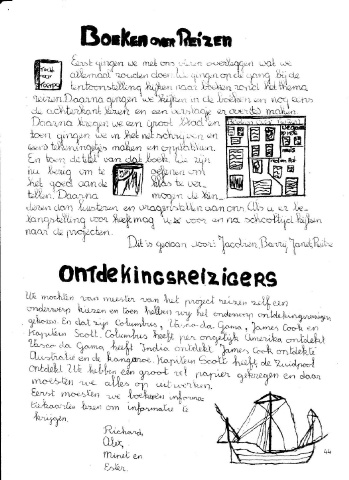 BOEKEN OVER REIZEN
Eerst gingen we met ons vieren overleggen wat we
allemaal zouden doen. We gingen op de gang bij de
tentoonstelling kijken naar boeken rond het thema
reizen. Daarna gingen we kijken in de boeken en nog eens
de achterkant lezen en een verslag er over te maken.
Daarna kregen we een groot blad en
toen gingen we in het net schrijven en
eerst tekeningetjes maken en opplakken.
En toen de titel van dat boek. We zijn
nu bezig om te oefenen om
het goed aan de klas te ver-
tellen. Daarna mogen de kin-
deren dan luisteren en vragen stellen aan ons. Als u er be-
langstelling voor heeft mag u voor en na schooltijd kijken
naar de projecten.
Dit is gedaan door: Jacolien, Barry, Janet,
ONTDEKINGSREIZIGERS
We mochten van meester van het project reizen zelf een
onderwerp kiezen en toen hebben wij het onderwerp ontdekkingsreizigers
gekozen. En dat zijn Columbus, Vasco da Gama, James Cook en
Kapitein Scott. Columbus heeft per ongeluk Amerika ontdekt
Vasco da Gama heeft India ontdekt. James Cook ontdekte
Australië en de kangaroe. Kapitein Scott heeft de Zuidpool
ontdekt. We hebben een groot vel papier gekregen en daar
moesten we alles op uitwerken.
Eerst moesten we boeken en informa-
tiekaarten lezen om informatie te
krijgen.
Richard,
Alex,
Minet en
Ester.
44